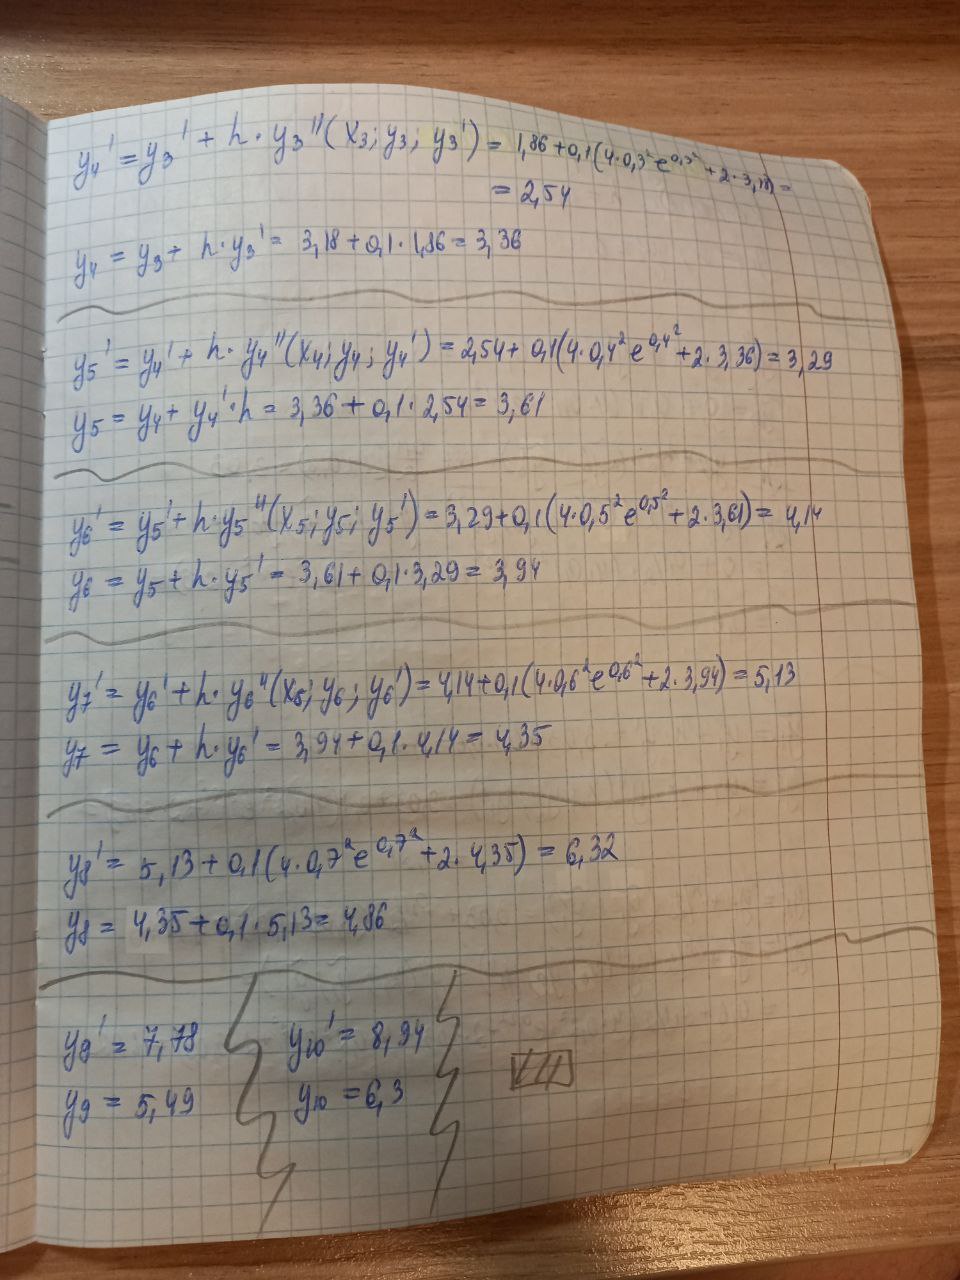 y₄' = y₃' + h·y₃''(x₃; y₃; y₃') = 1,86+0,1(4·0,3²e^0,3²+2·3,18)=
= 2,54
y₄ = y₃ + h·y₃' = 3,18+0,1·1,86 = 3,36
y₅' = y₄' + h·y₄''(x₄; y₄; y₄') = 2,54+0,1(4·0,4²e^0,4²+2·3,36)=3,29
y₅ = y₄ + y₄'·h = 3,36+0,1·2,54=3,61
y₆' = y₅' + h·y₅''(x₅; y₅; y₅') = 3,29+0,1(4·0,5²e^0,5²+2·3,61)=4,14
y₆ = y₅ + h·y₅' = 3,61+0,1·3,29=3,94
y₇' = y₆' + h·y₆''(x₅; y₆; y₆') = 4,14+0,1(4·0,6²e^0,6²+2·3,94)=5,13
y₇ = y₆ + h·y₆' = 3,94+0,1·4,14=4,35
y₈' = 5,13+0,1(4·0,7²e^0,7²+2·4,35)=6,32
y₈ = 4,35+0,1·5,13=4,86
y₉' = 7,78 y₁₀' = 8,94
y₉ = 5,49 y₁₀ = 6,3